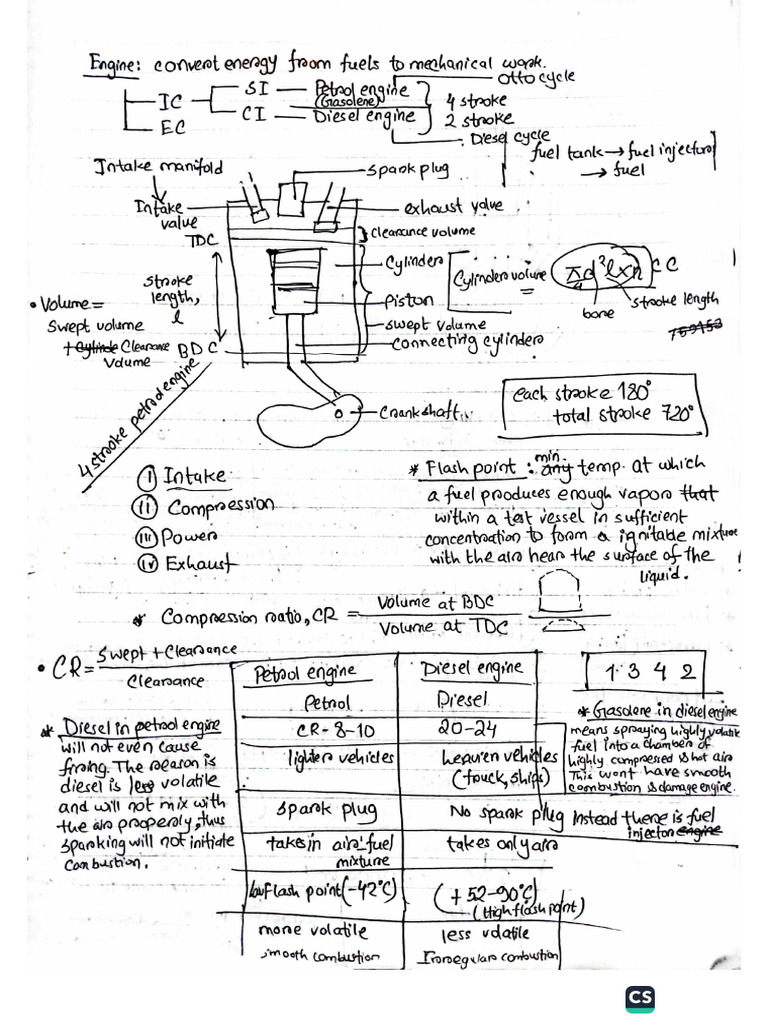 Engine: convert energy from fuels to mechanical work.
IC
EC
SI — Petrol engine
(Gasolene)
CI — Diesel engine
Otto cycle
4 stroke
2 stroke
Diesel cycle
fuel tank → fuel injector
→ fuel
Intake manifold
spark plug
Intake
value
exhaust valve
TDC
clearance volume
Cylinder
Cylinders volume
=
π/4 d²l×n CC
stroke length
bore
stroke
length,
l
Piston
• Volume =
Swept volume
+ Clearance
Volume
swept volume
BDC
connecting cylinders
4 stroke petrol engine
Crankshaft
each stroke 180°
total stroke 720°
(I) Intake
(II) Compression
(III) Power
(IV) Exhaust
* Flash point: min. temp. at which
a fuel produces enough vapors
within a test vessel in sufficient
concentration to form a ignitable mixture
with the air near the surface of the
liquid.
* Compression ratio, CR = Volume at BDC / Volume at TDC
• CR = Swept + Clearance / Clearance
Petrol engine | Diesel engine
Petrol | Diesel
CR-8-10 | 20-24
lighter vehicles | heavier vehicles
(truck, ships)
spark plug | No spark plug instead there is fuel
injector
takes in air-fuel
mixture | takes only air
low flash point (-42°C) | (+52-90°C)
(High flash point)
more volatile | less volatile
smooth combustion | Irregular combustion
1 3 4 2
* Diesel in petrol engine
will not even cause
firing. The reason is
diesel is less volatile
and will not mix with
the air properly, thus
sparking will not initiate
combustion.
* Gasolene in diesel engine
means spraying highly volatile
fuel into a chamber of
highly compressed & hot air
This wont have smooth
combustion & damage engine.
CS